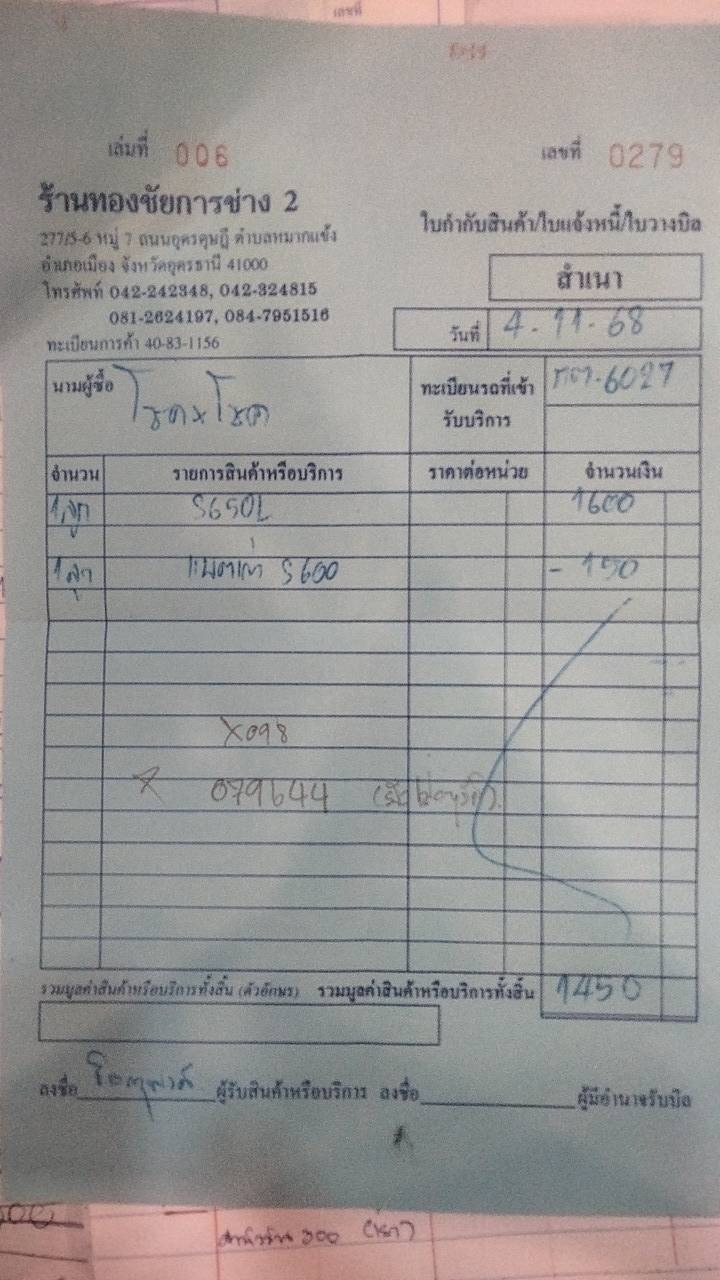 เลขที่
เล่มที่ 006 เลขที่ 0279
ร้านทองชัยการช่าง 2
277/5-6 หมู่ 7 ถนนอุดรดุษฎี ตำบลหมากแข้ง
อำเภอเมือง จังหวัดอุดรธานี 41000
โทรศัพท์ 042-242348, 042-324815
081-2624197, 084-7951516
ทะเบียนการค้า 40-83-1156
ใบกำกับสินค้า/ใบแจ้งหนี้/ใบวางบิล
สำเนา
วันที่ 4-11-68
นามผู้ซื้อ โชคxโชค
ทะเบียนรถที่เข้า 6027
รับบริการ
จำนวน รายการสินค้าหรือบริการ ราคาต่อหน่วย จำนวนเงิน
1 ลูก S650L 1600
1 ลูก แบตเก่า S600 - 150
X098
079644
รวมมูลค่าสินค้าหรือบริการทั้งสิ้น (ตัวอักษร) รวมมูลค่าสินค้าหรือบริการทั้งสิ้น 1450
ลงชื่อ ผู้รับสินค้าหรือบริการ ลงชื่อ ผู้มีอำนาจรับบิล
300